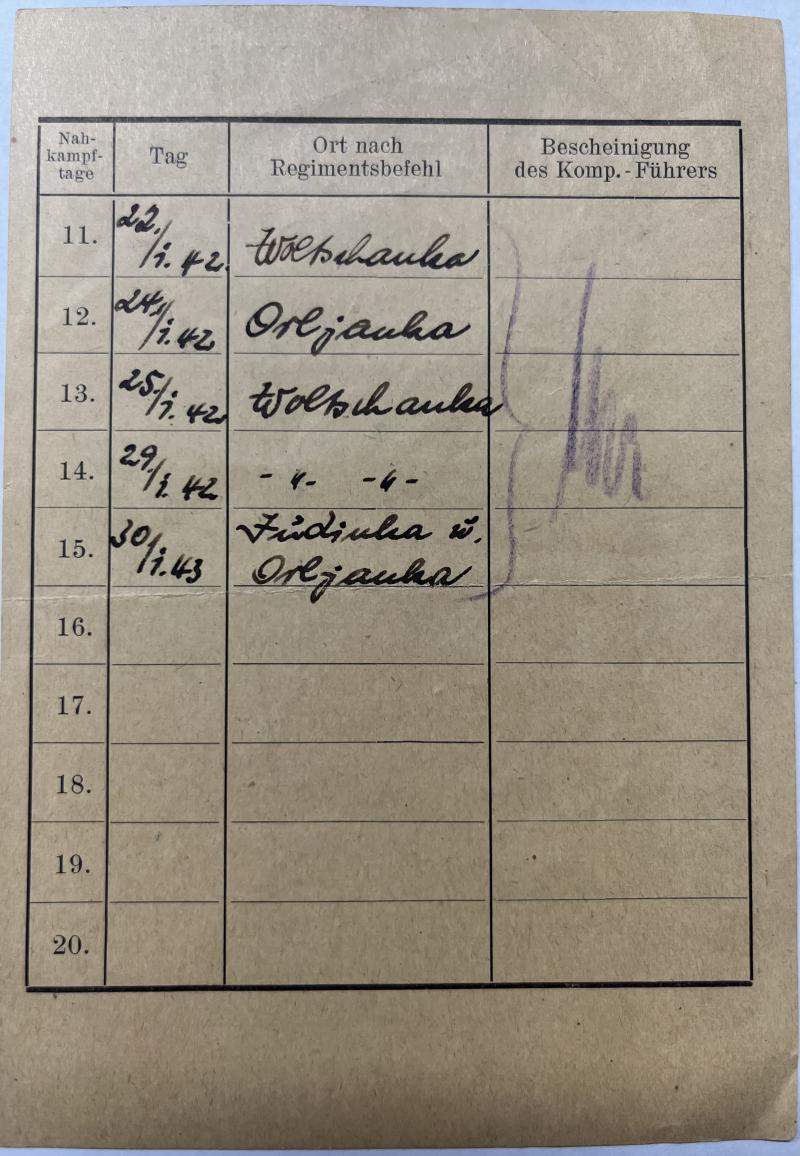 Nah-
kampf-
tage
Tag
Ort nach
Regimentsbefehl
Bescheinigung
des Komp.-Führers
11. 22./1. 42. Woltschanka
12. 24./1. 42 Orljanka
13. 25./1. 42. Woltschanka
14. 29./1. 42 -"- -"-
15. 30/1. 43 Judinka u.
Orljanka
16.
17.
18.
19.
20.